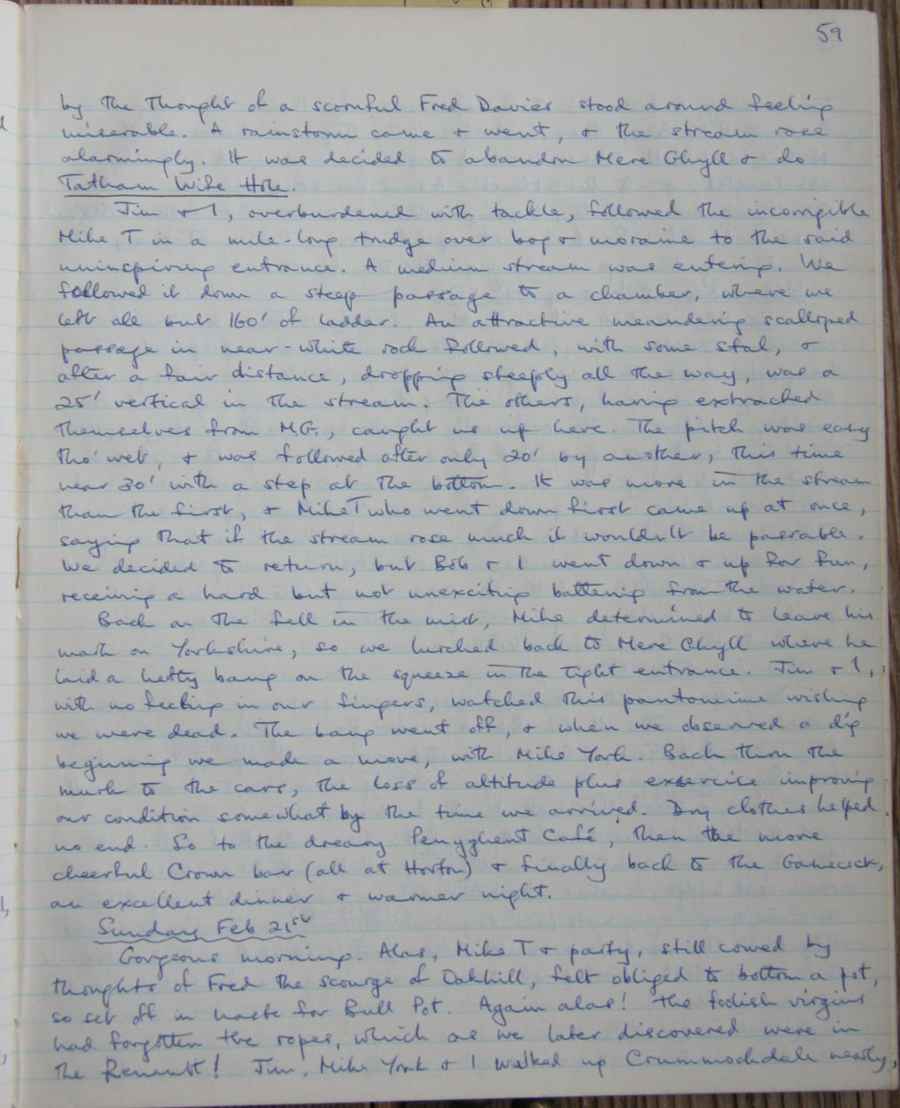 59
by the thought of a scornful Fred Davies stood around feeling
miserable. A rainstorm came & went, & the stream rose
alarmingly. It was decided to abandon Mere Ghyll & do
Tatham Wife Hole.
Jim & I, overburdened with tackle, followed the incorrigible
Mike T in a mile-long trudge over bog & moraine to the said
uninspiring entrance. A medium stream was entering. We
followed it down a steep passage to a chamber, where we
left all but 160' of ladder. An attractive meandering scalloped
passage in near-white rock followed, with some stal, &
after a fair distance, dropping steeply all the way, was a
25' vertical in the stream. The others, having extracted
themselves from M.G., caught us up here. The pitch was easy
tho' wet, & was followed after only 20' by another, this time
near 30' with a step at the bottom. It was more in the stream
than the first, & Mike T who went down first came up at once,
saying that if the stream rose much it wouldn't be passable.
We decided to return, but Bob & I went down & up for fun,
receiving a hard but not unexciting battering from the water.
Back on the fell in the mist, Mike determined to leave his
mark on Yorkshire, so we lurched back to Mere Ghyll where he
laid a hefty bang on the squeeze in the tight entrance. Jim & I,
with no feeling in our fingers, watched this pantomime wishing
we were dead. The bang went off, & when we observed a dig
beginning we made a move, with Mike York. Back thru the
murk to the cars, the loss of altitude plus exercise improving
our condition somewhat by the time we arrived. Dry clothes helped
no end. So to the dreary Penyghent Café, then the more
cheerful Crown bar (all at Horton) & finally back to the Gamecock,
an excellent dinner & warmer night.
Sunday Feb 21st
Gorgeous morning. Alas, Mike T & party, still cowed by
thoughts of Fred the scourge of Oakhill, felt obliged to bottom a pot,
so set off in haste for Bull Pot. Again alas! the foolish virgins
had forgotten the ropes, which as we later discovered were in
the Renault! Jim, Mike York & I walked up Crummockdale nearly,